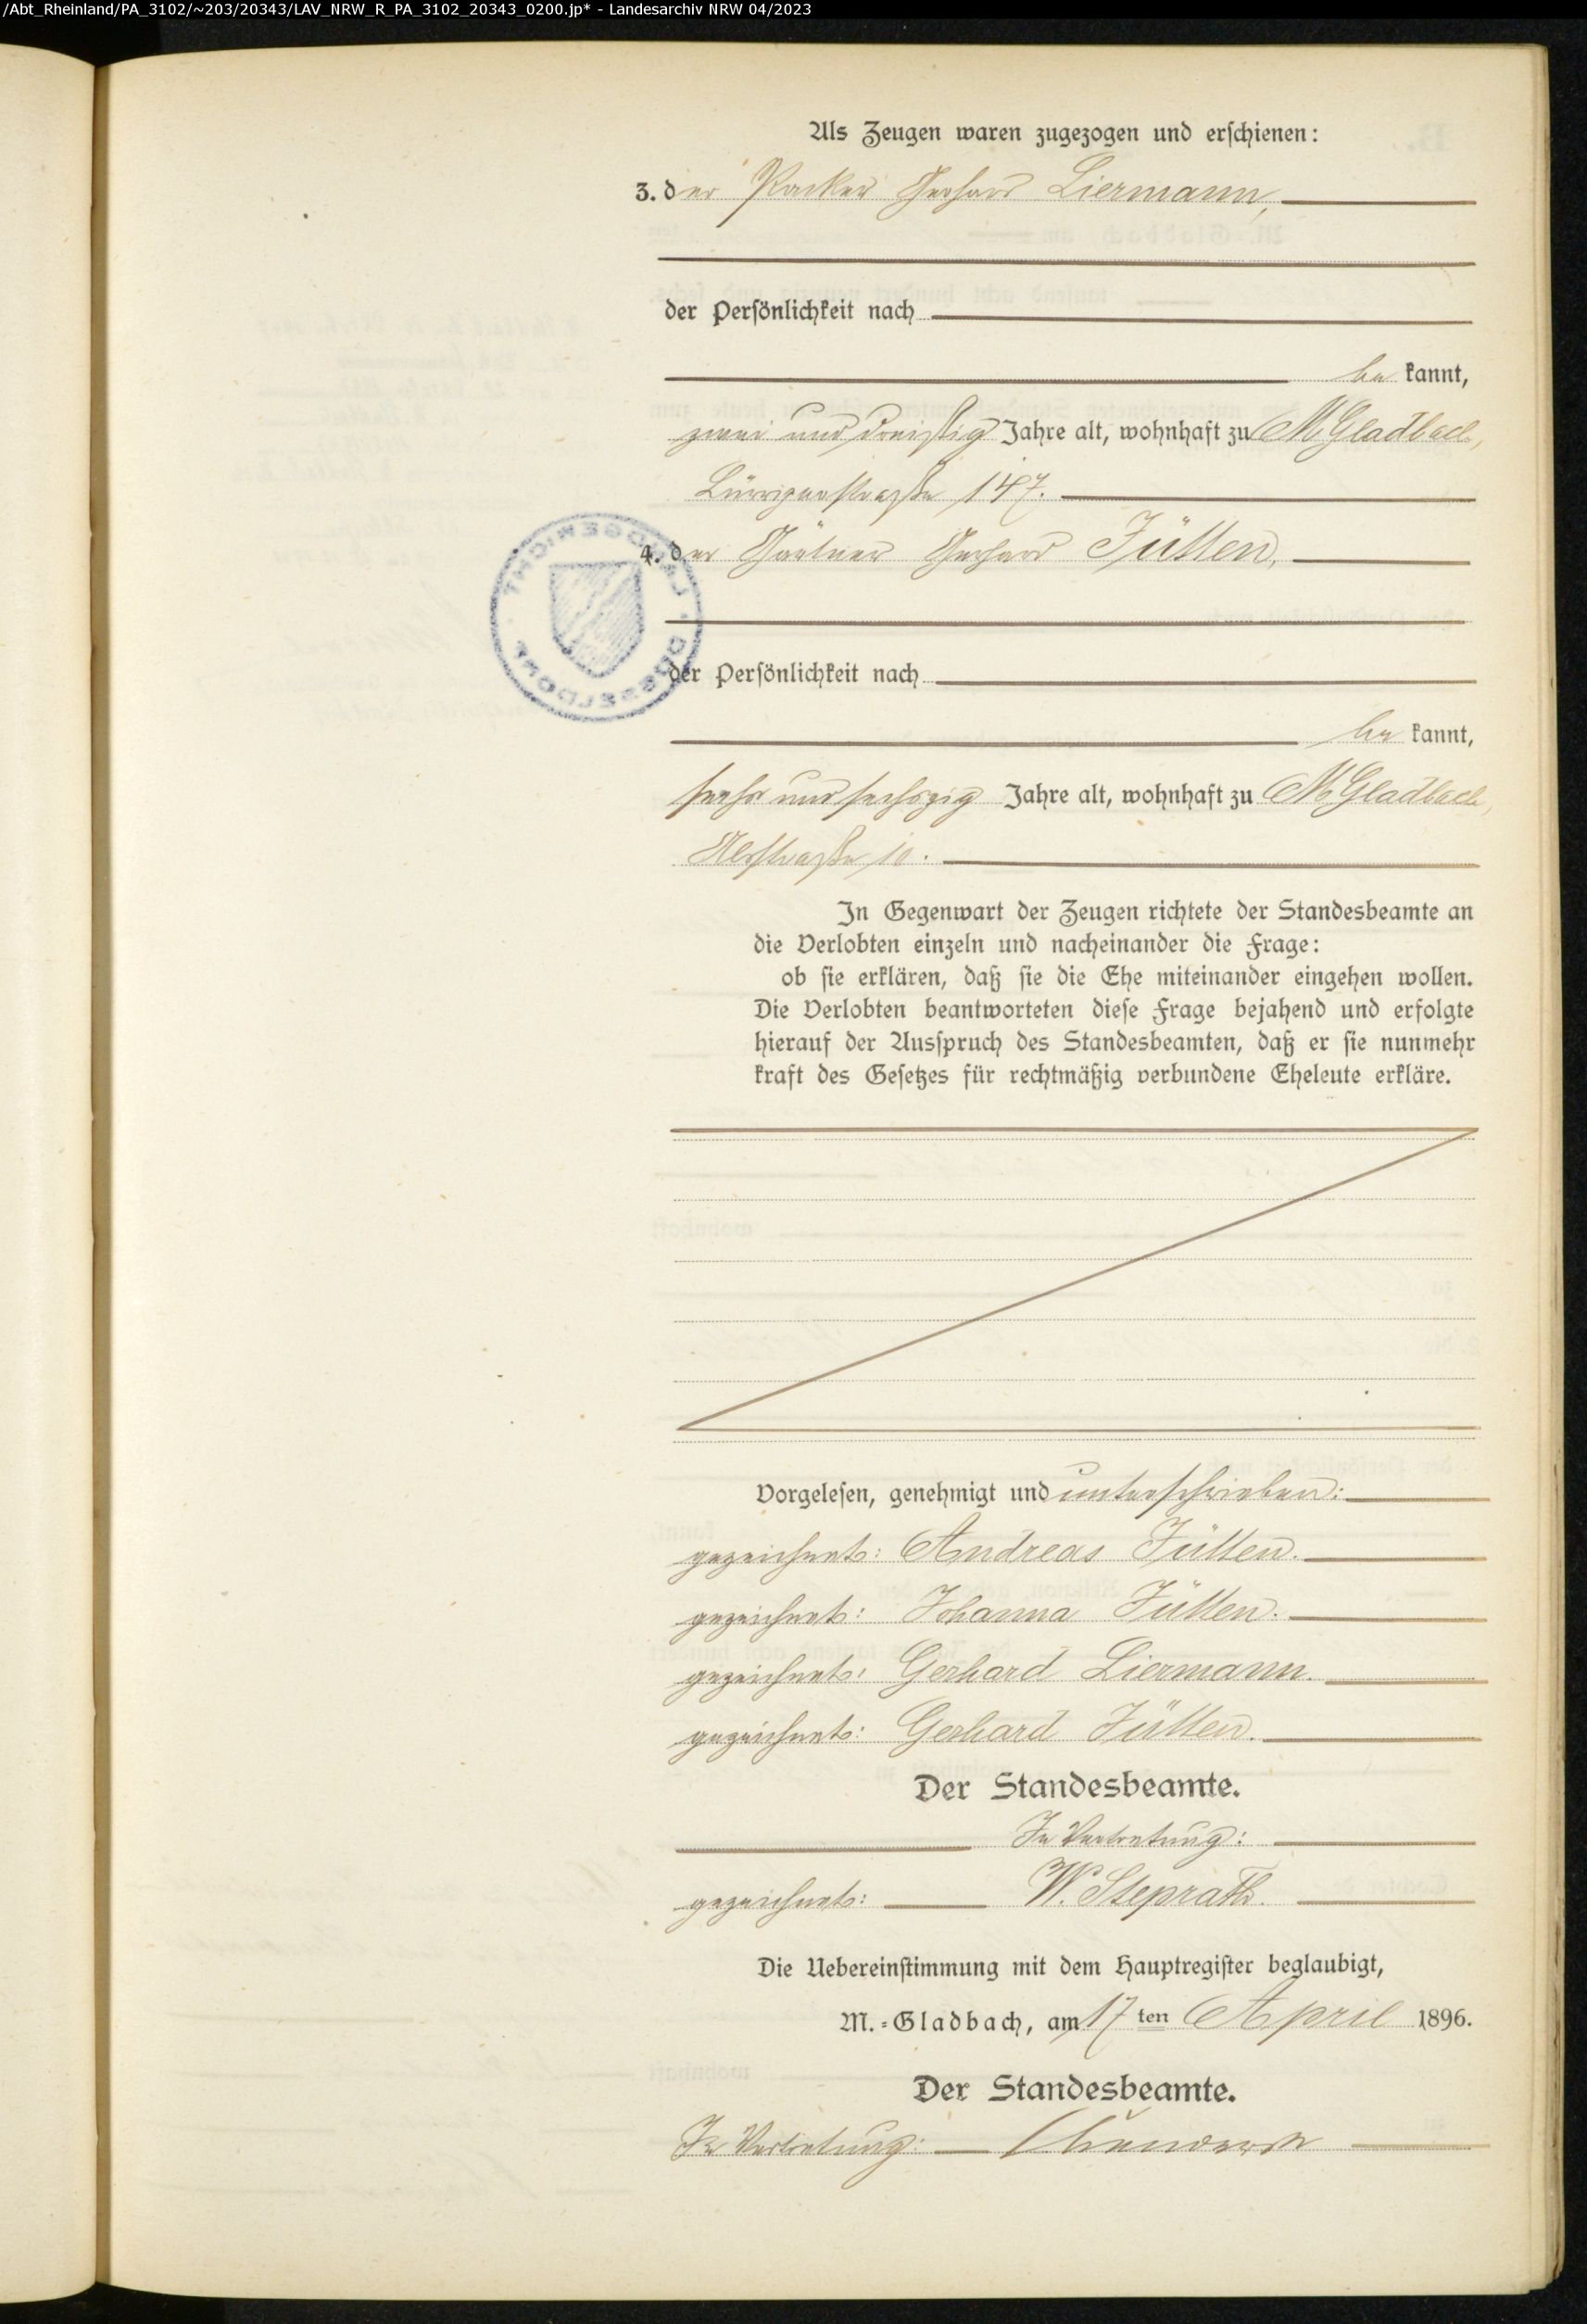 /Abt_Rheinland/PA_3102/~203/20343/LAV_NRW_R_PA_3102_20343_0200.jp* - Landesarchiv NRW 04/2023
Als Zeugen waren zugezogen und erschienen:
3. der Packer Gerhard Liermann,
der Persönlichkeit nach
be kannt,
zwei und dreißig Jahre alt, wohnhaft zu M. Gladbach,
Lürriperstraße 147.
4. der Gärtner Gerhard Jüllen,
der Persönlichkeit nach
be kannt,
sechs und sechszig Jahre alt, wohnhaft zu M. Gladbach,
10.
In Gegenwart der Zeugen richtete der Standesbeamte an
die Verlobten einzeln und nacheinander die Frage:
ob sie erklären, daß sie die Ehe miteinander eingehen wollen.
Die Verlobten beantworteten diese Frage bejahend und erfolgte
hierauf der Ausspruch des Standesbeamten, daß er sie nunmehr
kraft des Gesetzes für rechtmäßig verbundene Eheleute erkläre.
Vorgelesen, genehmigt und unterschrieben:
gezeichnet: Andreas Jüllen.
gezeichnet: Johanna Jüllen.
gezeichnet: Gerhard Liermann.
gezeichnet: Gerhard Jüllen.
Der Standesbeamte.
In Vertretung:
gezeichnet: W. Steprath.
Die Uebereinstimmung mit dem Hauptregister beglaubigt,
M.-Gladbach, am 17 ten April 1896.
Der Standesbeamte.
In Vertretung: